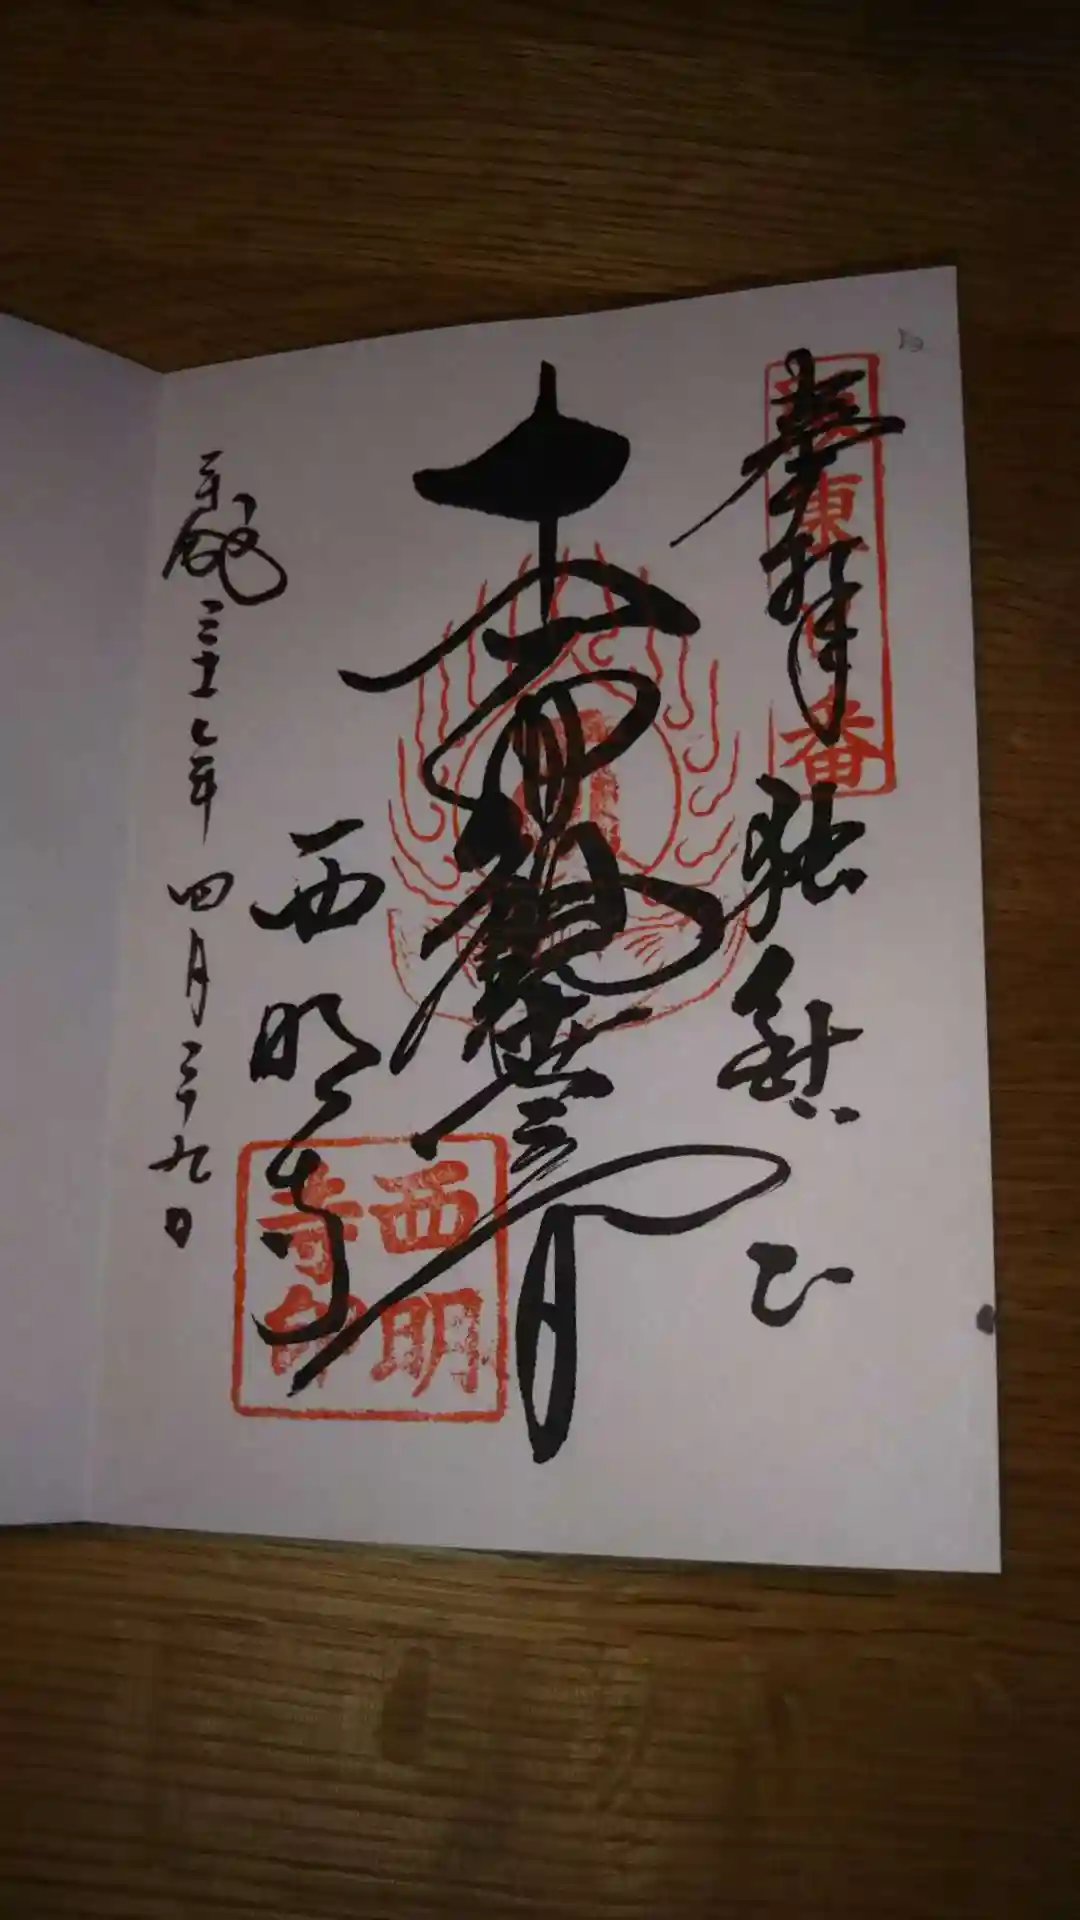 奉拝 独鈷山
東 番
十一面観世音
西明寺
西明寺印
平成二十七年四月二十九日